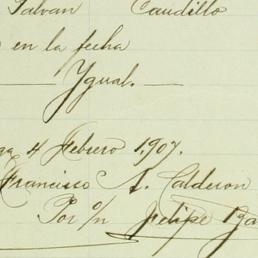 Galvan Caudillo
en la fecha
Ygual.
4 Febrero 1.907.
Francisco A. Calderon
Por o/n Felipe